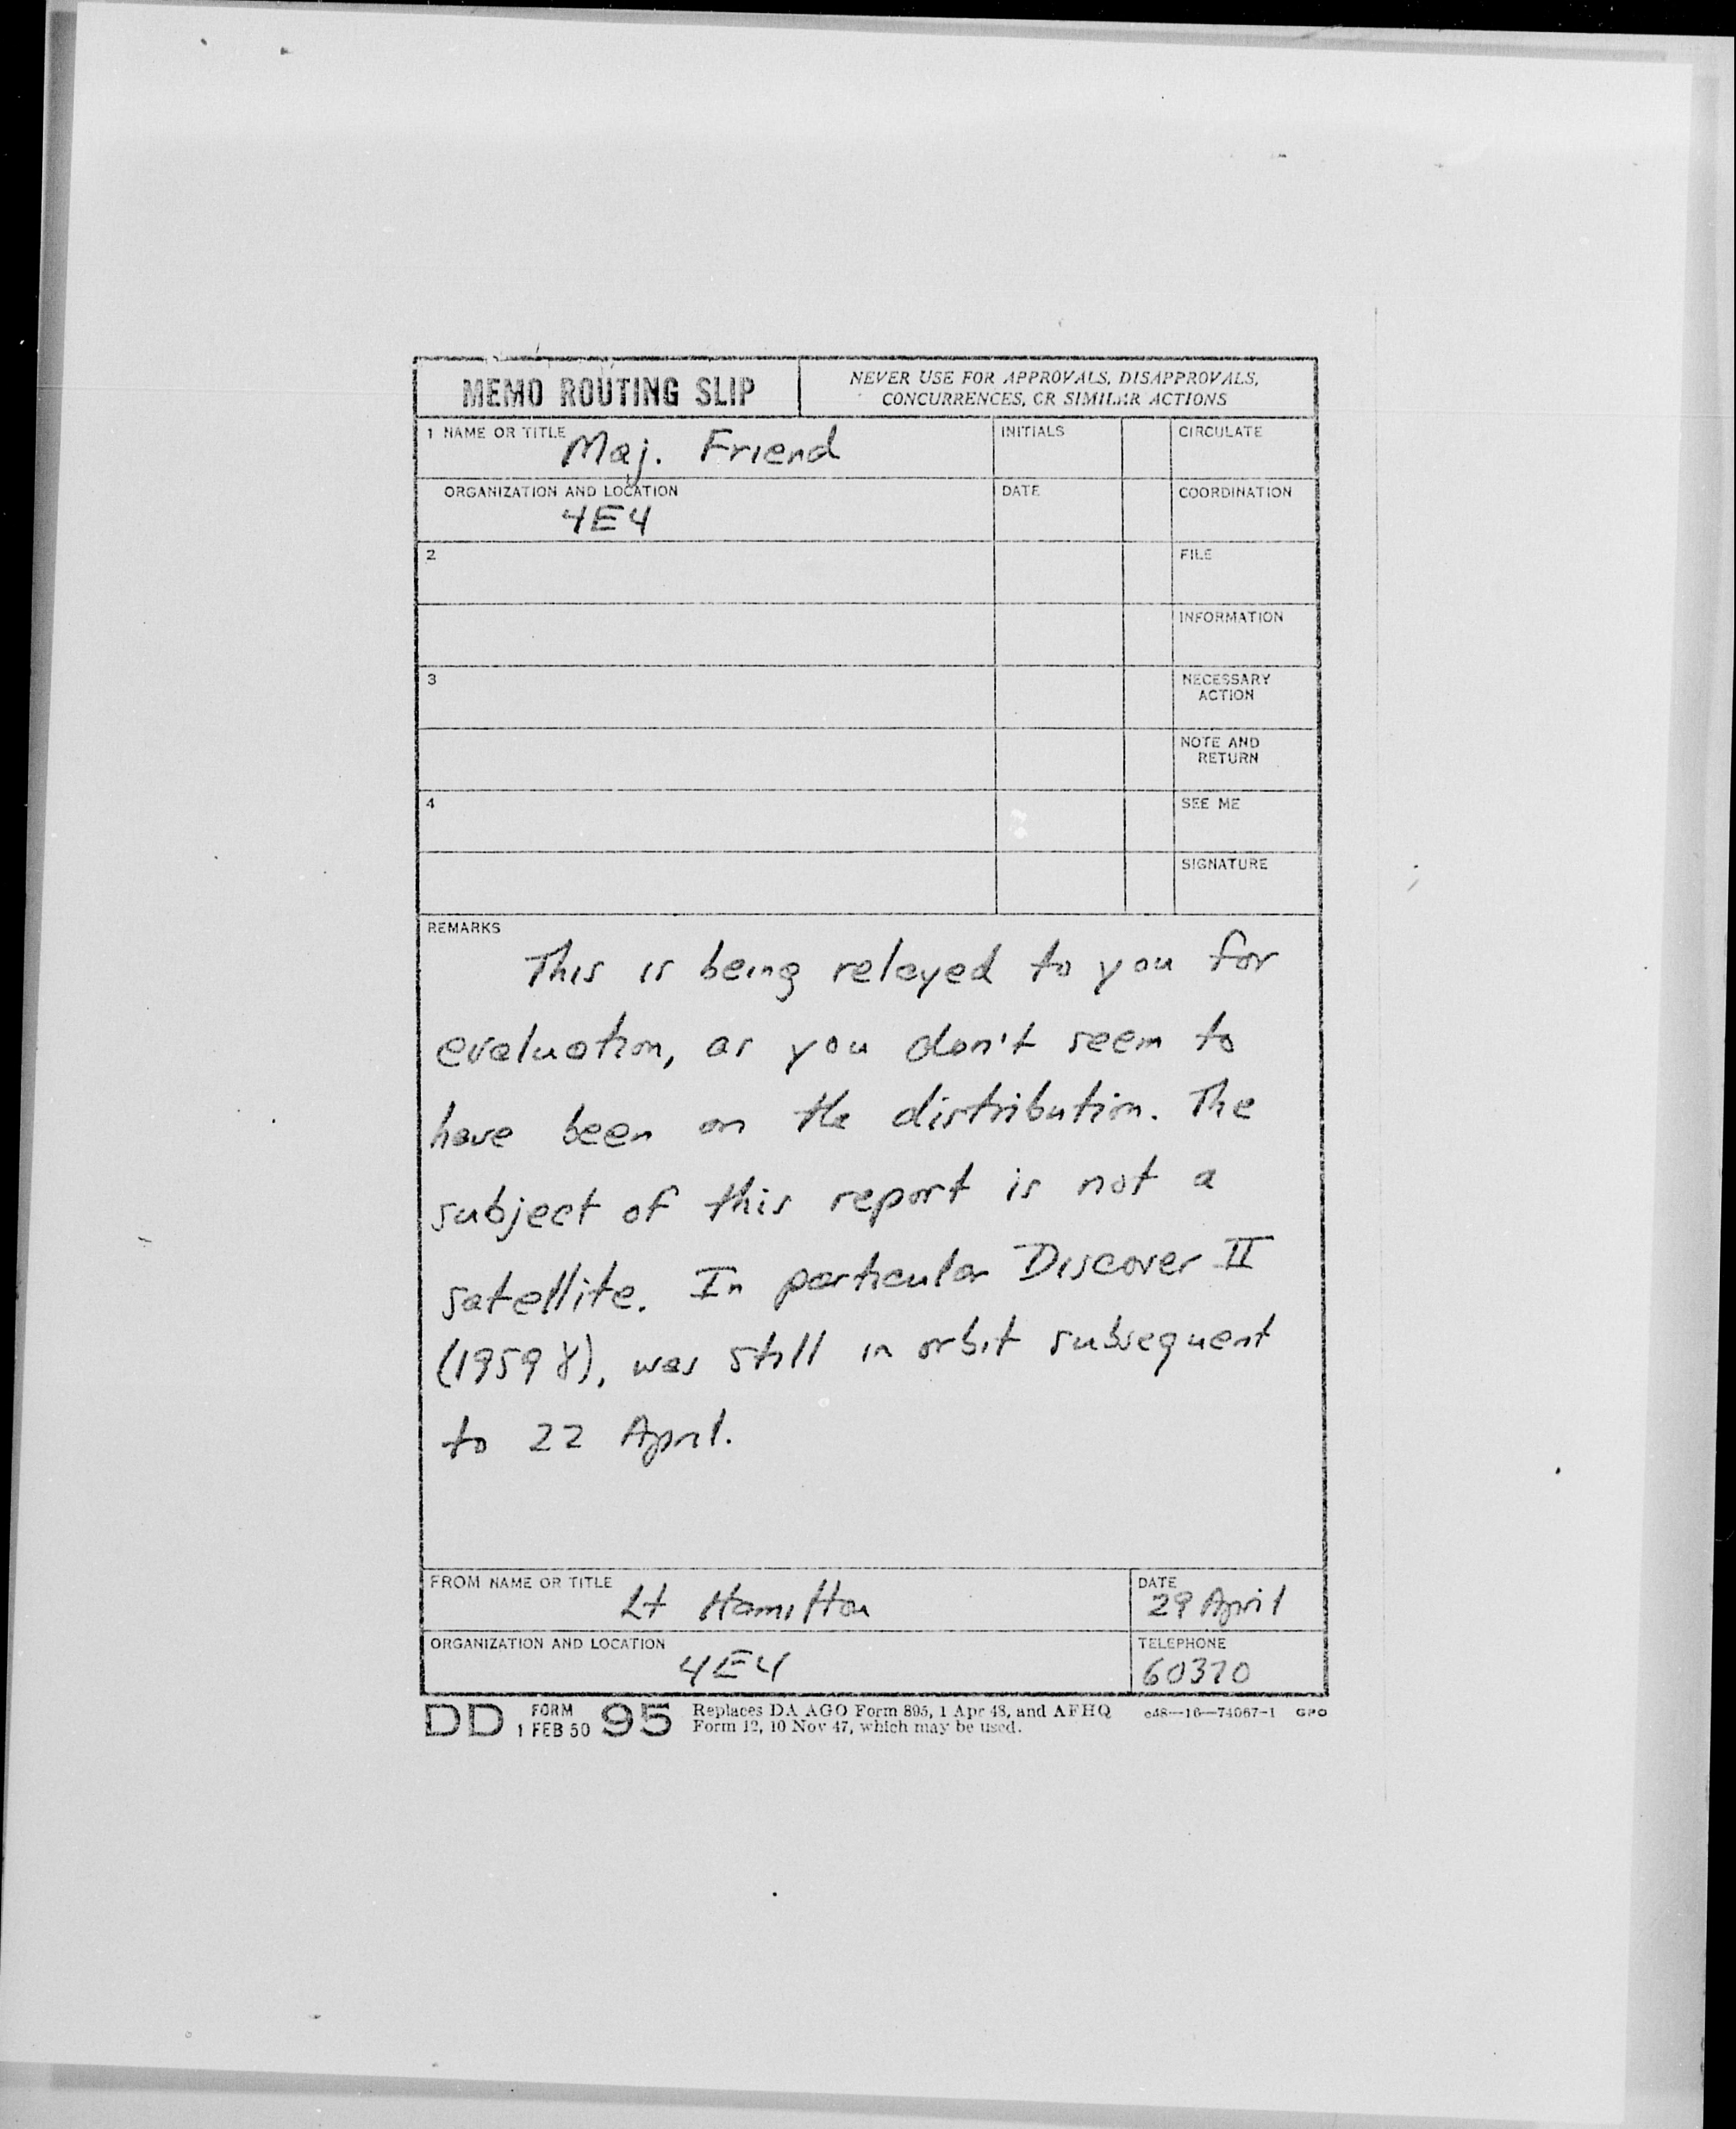 MEMO ROUTING SLIP
NEVER USE FOR APPROVALS, DISAPPROVALS,
CONCURRENCES, OR SIMILAR ACTIONS
1 NAME OR TITLE Maj. Friend
INITIALS
CIRCULATE
ORGANIZATION AND LOCATION
4E4
DATE
COORDINATION
2
FILE
INFORMATION
3
NECESSARY
ACTION
NOTE AND
RETURN
4
SEE ME
SIGNATURE
REMARKS
This is being relayed to you for
evaluation, as you don't seem to
have been on the distribution. The
subject of this report is not a
satellite. In particular Discover II
(1959 γ), was still in orbit subsequent
to 22 April.
FROM NAME OR TITLE Lt Hamilton
DATE
29 April
ORGANIZATION AND LOCATION
4E4
TELEPHONE
60370
DD FORM 1 FEB 50 95
Replaces DA AGO Form 895, 1 Apr 48, and AFHQ
Form 12, 10 Nov 47, which may be used.
c48—16—74067-1 GPO